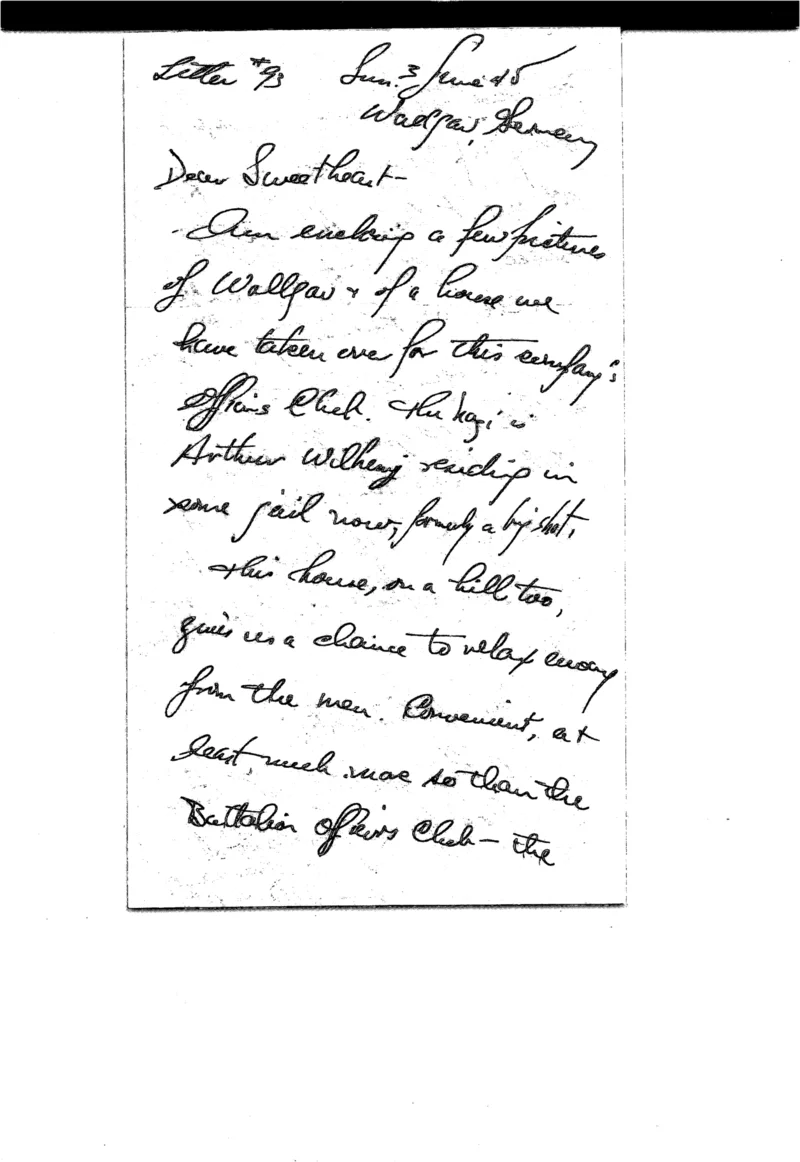 Letter #93 Sun. 3 June 45
Wadgas, Germany
Dear Sweetheart-
Am enclosing a few pictures
of Wallgau + of a house we
have taken over for this company's
Officers Club. The nazi is
Arthur residing in
some jail now, formerly a big shot.
This house, on a hill too,
gives us a chance to relax away
from the men. Convenient, at
least, much more so than the
Battalion Officers Club - the